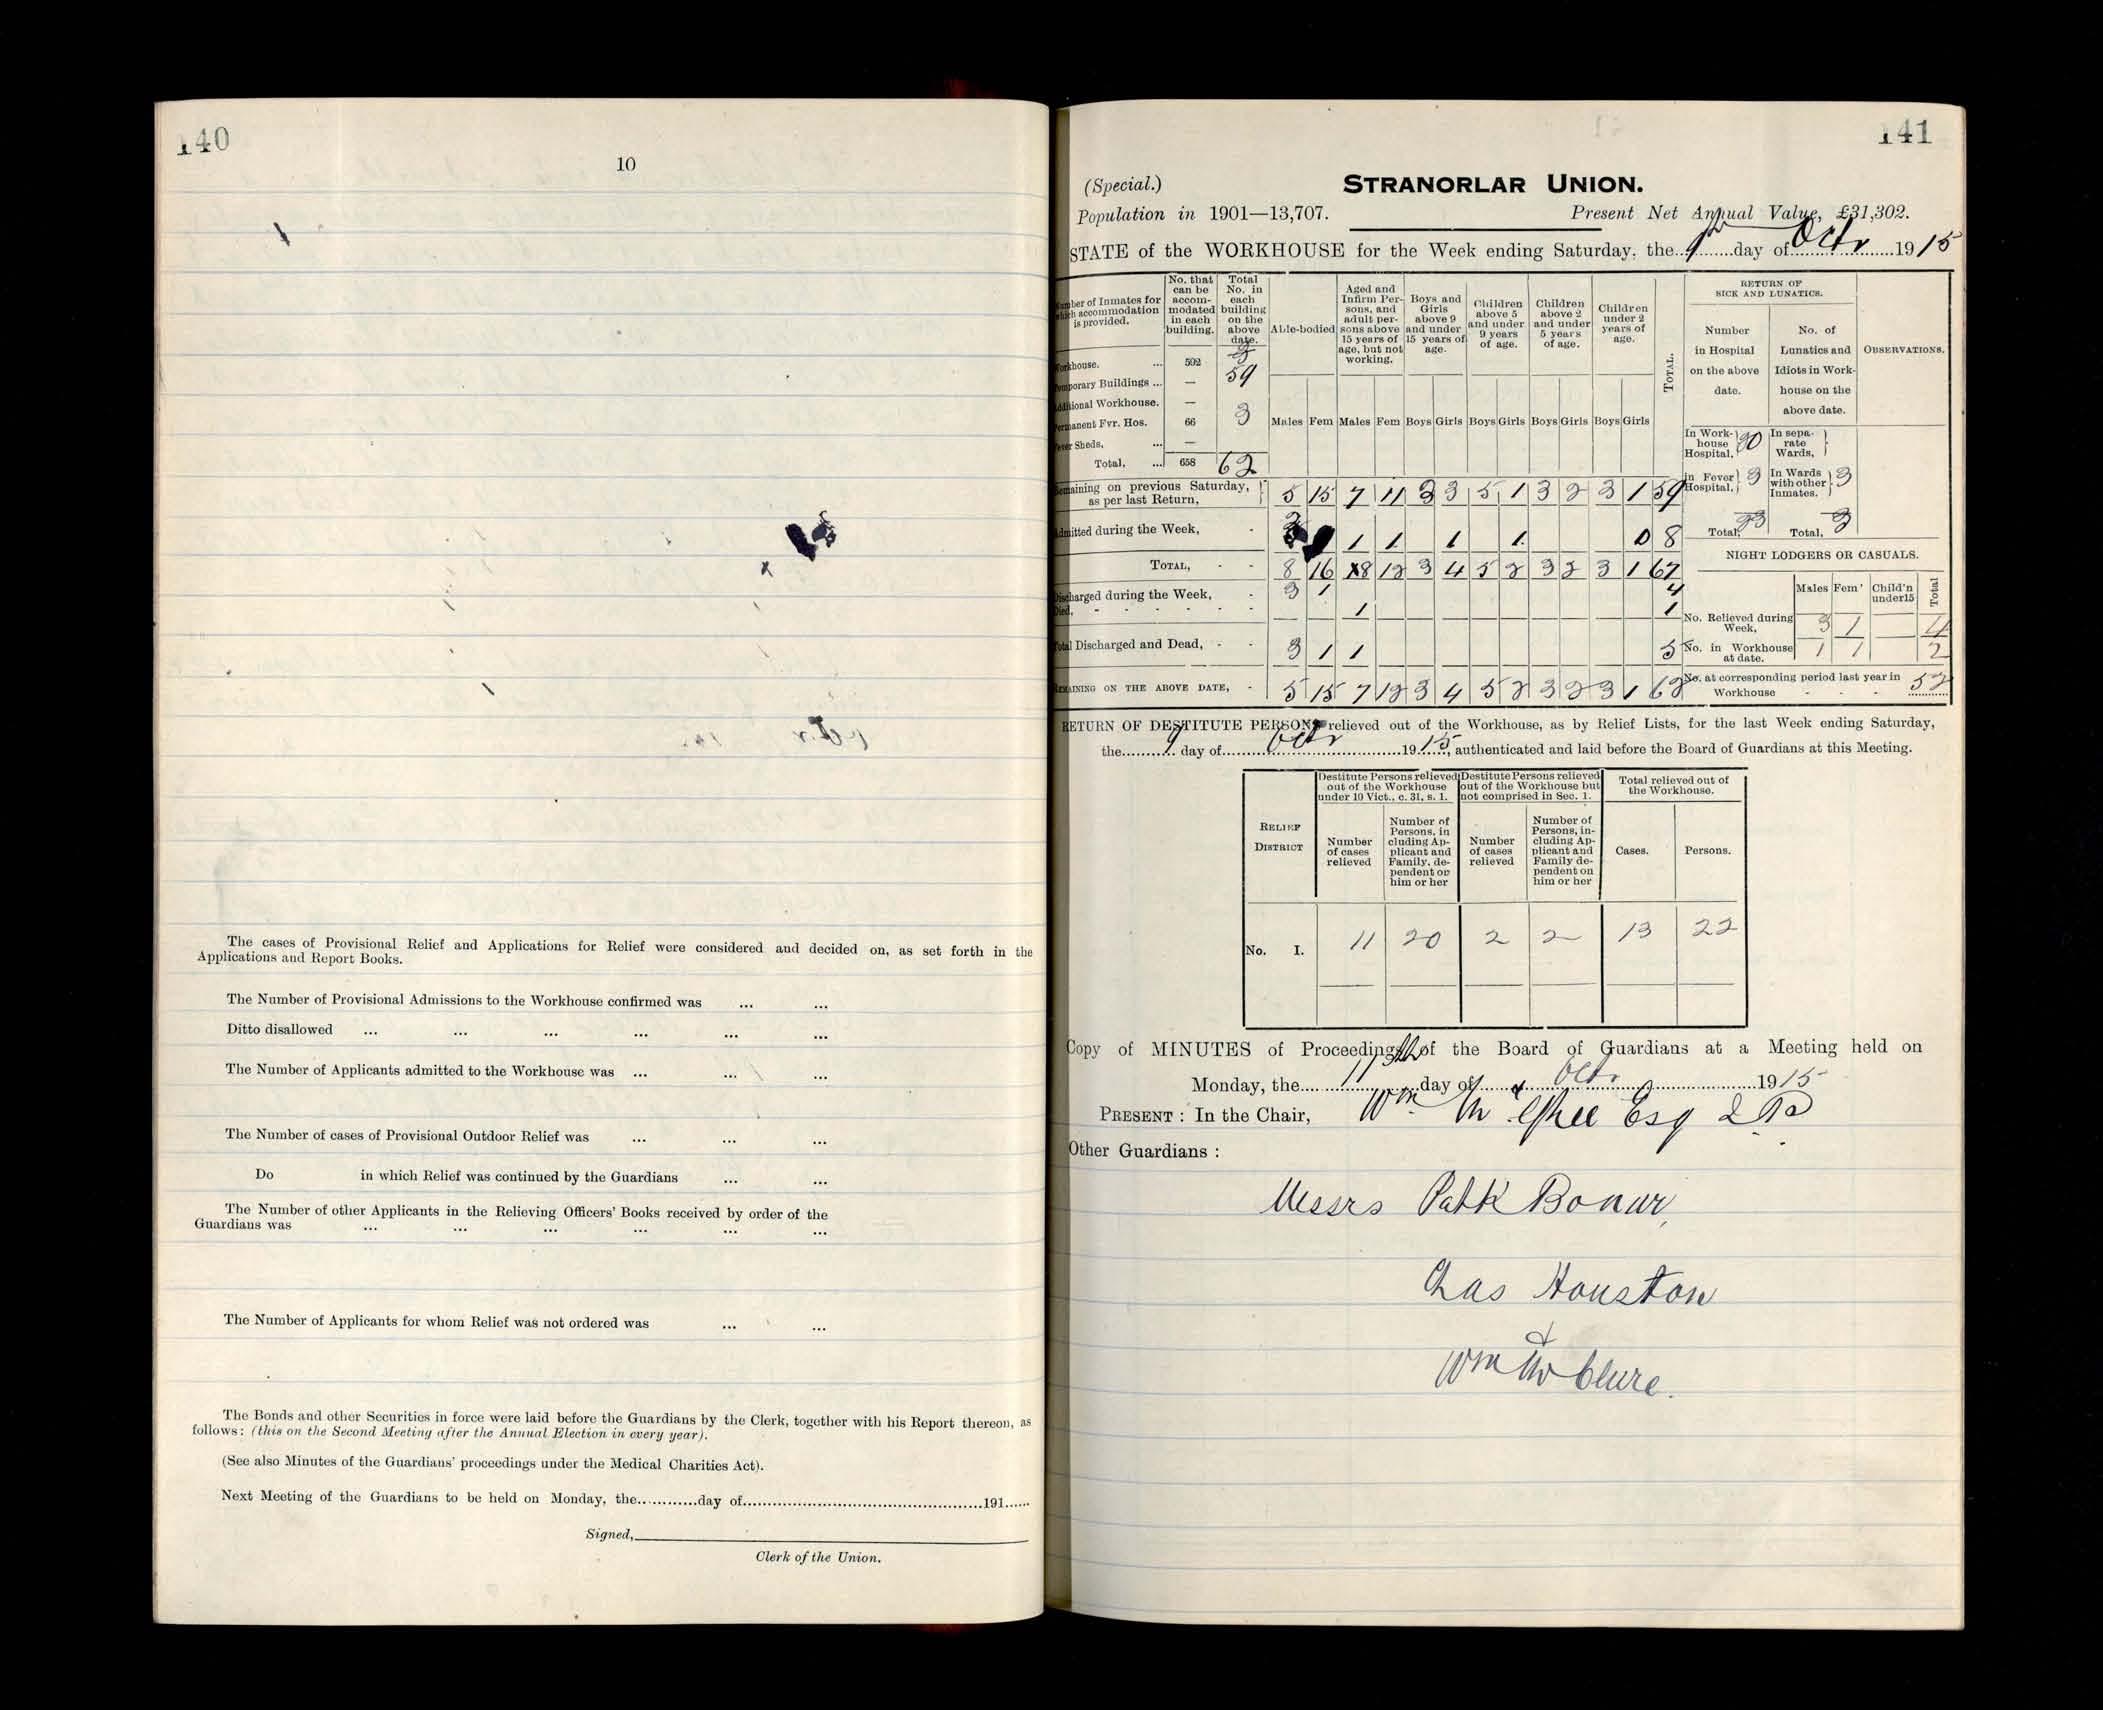 140
10
The cases of Provisional Relief and Applications for Relief were considered and decided on, as set forth in the
Applications and Report Books.
The Number of Provisional Admissions to the Workhouse confirmed was ... ...
Ditto disallowed ... ... ... ... ... ...
The Number of Applicants admitted to the Workhouse was ... ... ...
The Number of cases of Provisional Outdoor Relief was ... ... ...
Do in which Relief was continued by the Guardians ... ...
The Number of other Applicants in the Relieving Officers' Books received by order of the
Guardians was ... ... ... ... ... ...
The Number of Applicants for whom Relief was not ordered was ... ...
The Bonds and other Securities in force were laid before the Guardians by the Clerk, together with his Report thereon, as
follows: (this on the Second Meeting after the Annual Election in every year).
(See also Minutes of the Guardians' proceedings under the Medical Charities Act).
Next Meeting of the Guardians to be held on Monday, the............day of................................................191......
Signed,
Clerk of the Union.
141
(Special.) STRANORLAR UNION.
Population in 1901—13,707. Present Net Annual Value, £31,302.
STATE of the WORKHOUSE for the Week ending Saturday, the 9th day of Octr 1915
Number of Inmates for which accommodation is provided.
No. that can be accommodated in each building.
Total No. in each building on the above date.
Able-bodied
Aged and Infirm Persons, and adult persons above 15 years of age, but not working.
Boys and Girls above 9 and under 15 years of age.
Children above 5 and under 9 years of age.
Children above 2 and under 5 years of age.
Children under 2 years of age.
TOTAL.
RETURN OF SICK AND LUNATICS.
Number in Hospital on the above date.
No. of Lunatics and Idiots in Workhouse on the above date.
OBSERVATIONS.
Workhouse. ... 592 59
Temporary Buildings ... —
Additional Workhouse. —
Permanent Fvr. Hos. 66 3
Fever Sheds, ... —
Total, ... 658 62
Males Fem Males Fem Boys Girls Boys Girls Boys Girls Boys Girls
In Workhouse Hospital, 30 In separate Wards,
in Fever Hospital, 3 In Wards with other Inmates. 3
Total, 33 Total, 3
Remaining on previous Saturday, as per last Return, 5 15 7 11 3 3 5 1 3 2 3 1 59
Admitted during the Week, - 3 1 1 1 1 0 8
TOTAL, - - 8 16 8 12 3 4 5 2 3 2 3 1 67
Discharged during the Week, - 3 1 4
Died, - - - - - - 1 1
Total Discharged and Dead, - - 3 1 1 5
REMAINING ON THE ABOVE DATE, - 5 15 7 12 3 4 5 2 3 2 3 1 62
NIGHT LODGERS OR CASUALS.
Males Fem' Child'n under15 Total
No. Relieved during Week, 3 1 4
No. in Workhouse at date. 1 1 2
No. at corresponding period last year in Workhouse - - - 52
RETURN OF DESTITUTE PERSONS relieved out of the Workhouse, as by Relief Lists, for the last Week ending Saturday,
the 9 day of Octr 1915, authenticated and laid before the Board of Guardians at this Meeting.
RELIEF DISTRICT
Destitute Persons relieved out of the Workhouse under 10 Vict., c. 31, s. 1.
Destitute Persons relieved out of the Workhouse but not comprised in Sec. 1.
Total relieved out of the Workhouse.
Number of cases relieved
Number of Persons, including Applicant and Family, dependent on him or her
Number of cases relieved
Number of Persons, including Applicant and Family dependent on him or her
Cases.
Persons.
No. I. 11 20 2 2 13 22
Copy of MINUTES of Proceedings of the Board of Guardians at a Meeting held on
Monday, the 11th day of Octr 1915
PRESENT: In the Chair, Wm McGhee Esq JP
Other Guardians:
Messrs Patk Bonar,
Chas Houston
&
Wm McClure.